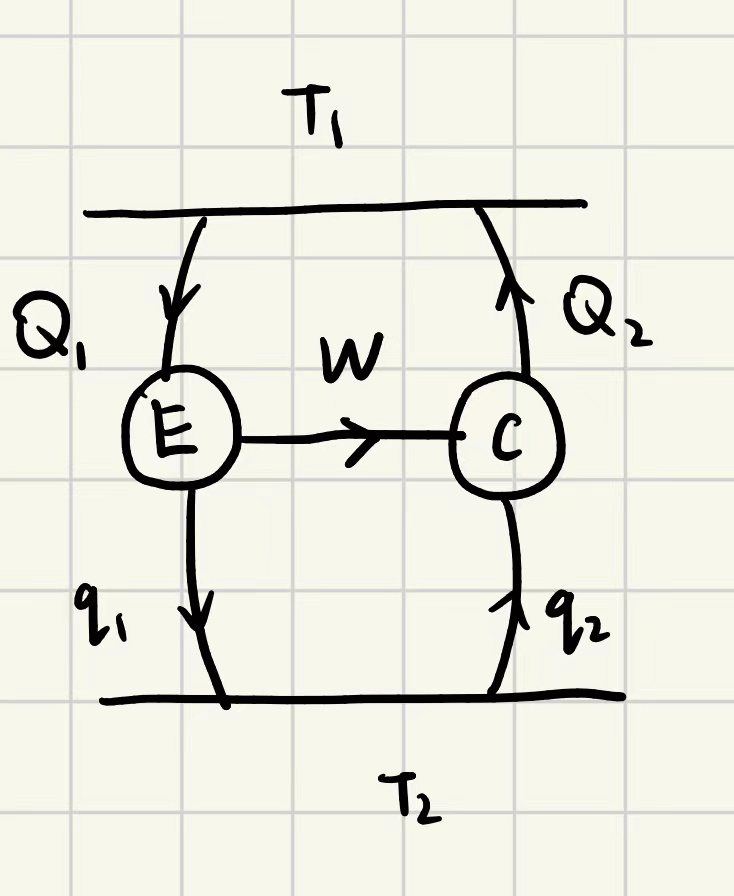 T₁
Q₁
W
Q₂
E
C
q₁
q₂
T₂